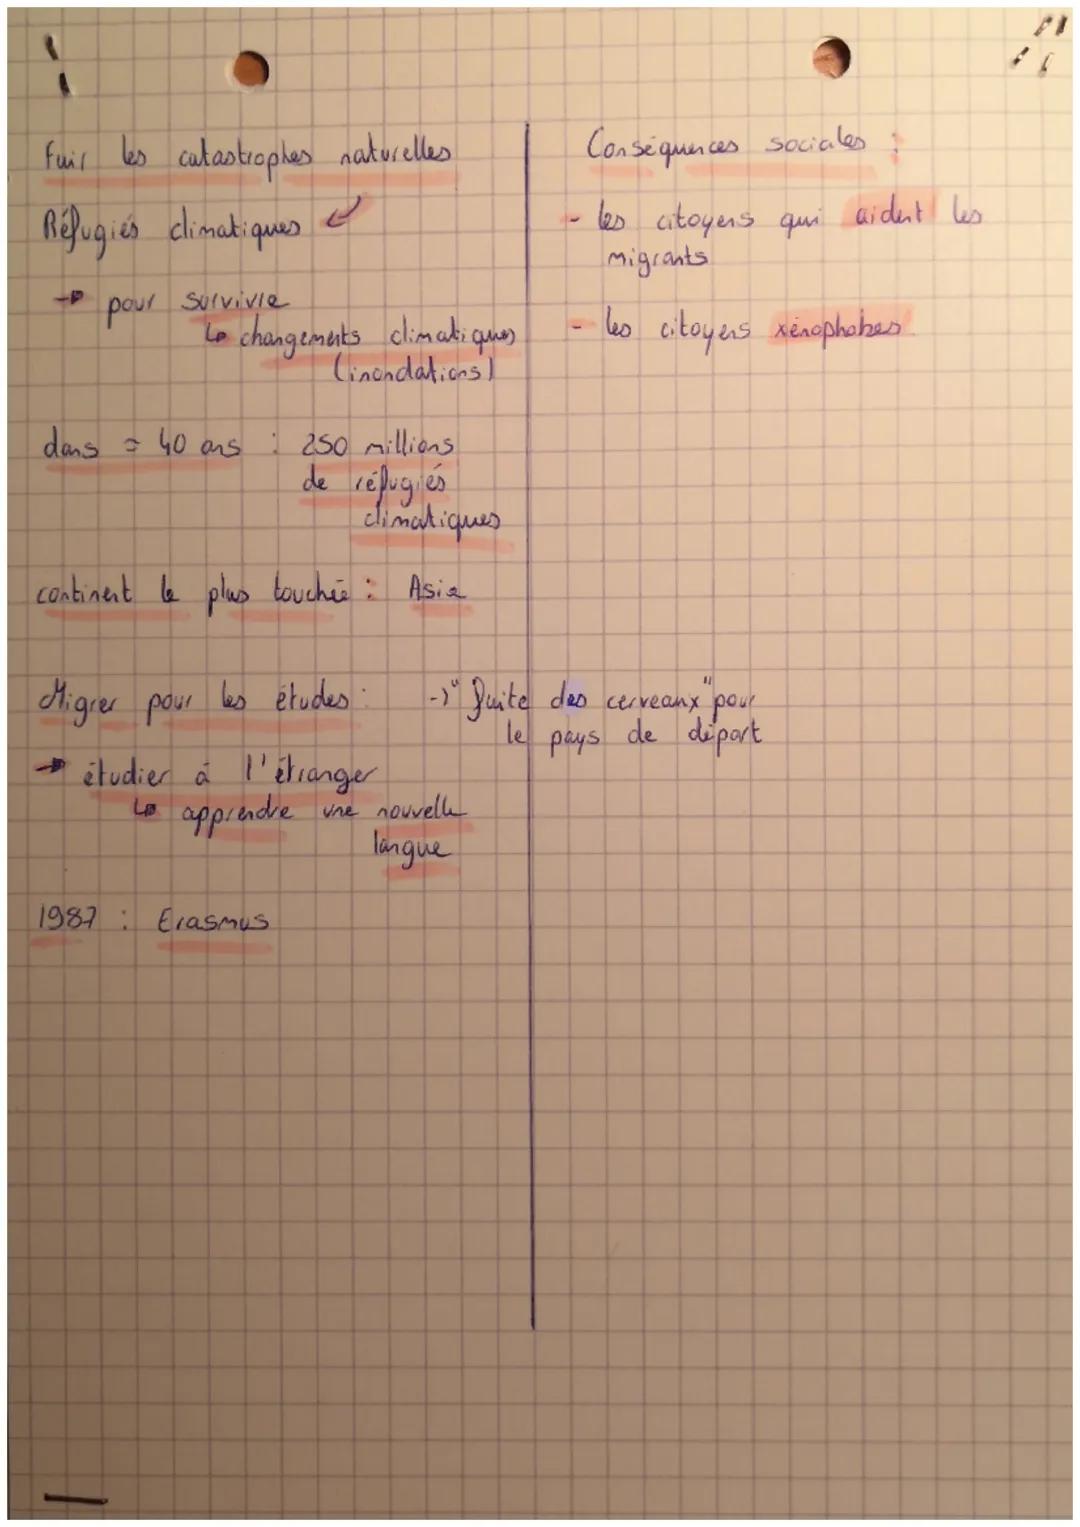 Fuir les catastrophes naturelles
Réfugiés climatiques ↙
→ pour survivre
↳ changements climatiques
(inondations)
dans ≃ 40 ans : 250 millions
de réfugiés
climatiques
continent le plus touchée : Asie
Migrer pour les études :
→ étudier à l'étranger
↳ apprendre une nouvelle
langue
1987 : Erasmus
Conséquences sociales :
- les citoyens qui aident les
migrants
- les citoyens xénophobes
→ "fuite des cerveaux" pour
le pays de départ